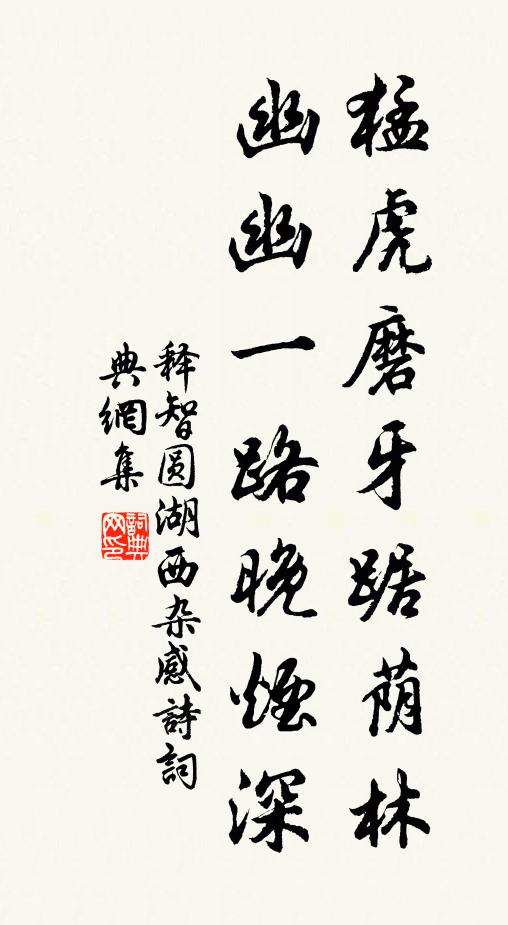 猛虎磨牙踞荫林
幽幽一路晚煙深
释智圆湖西杂感詩詞
典網集
詞典網印